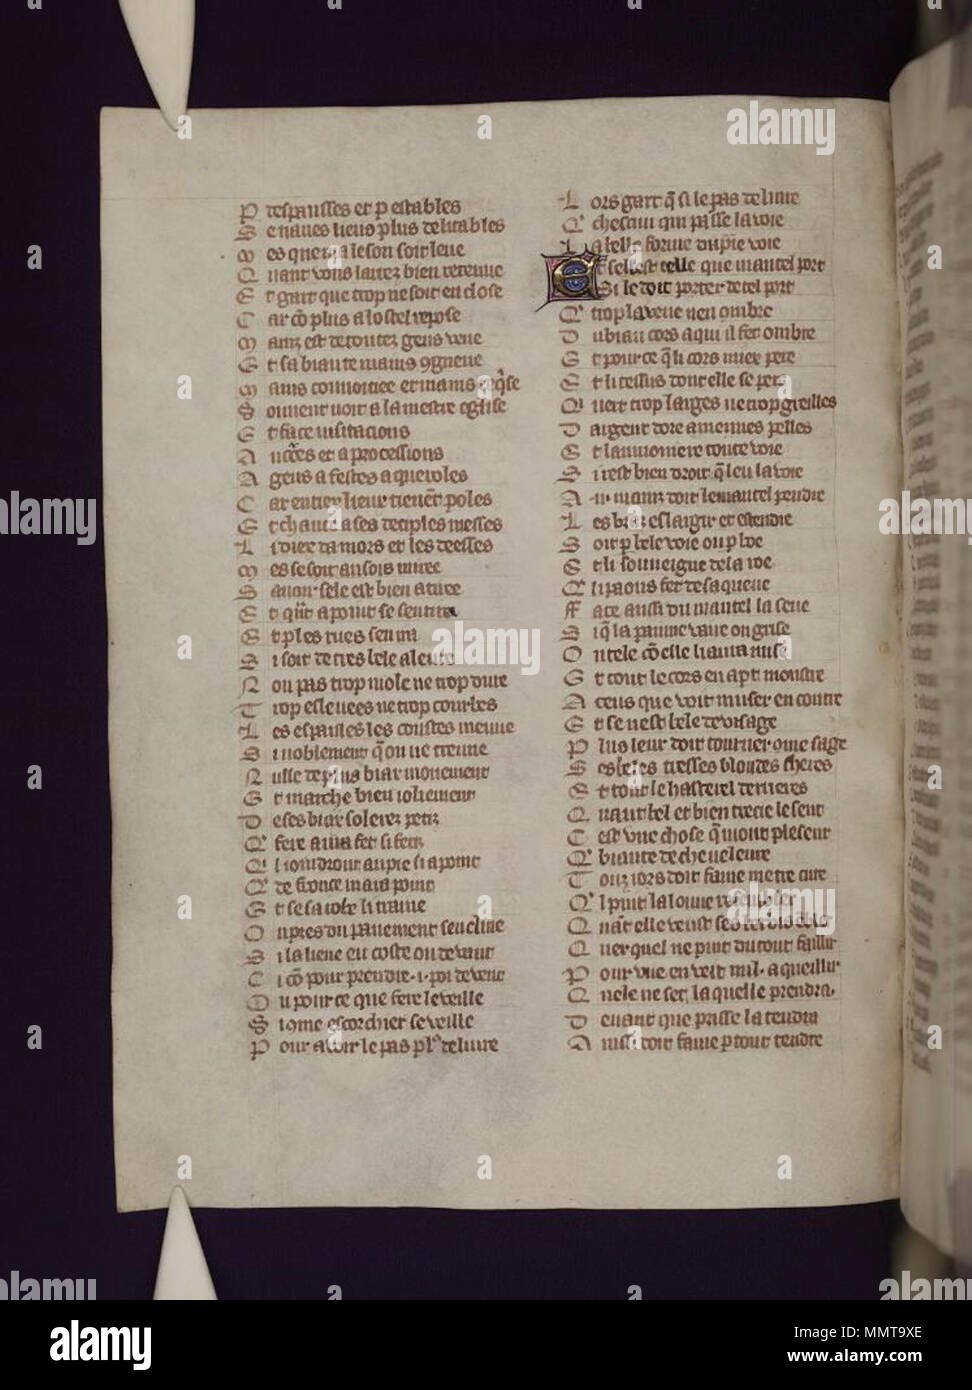 P despausses et p estables
S e naues lieus plus delitables
M es que maleson soit leue
Q uant vous lauez bien retenue
E t gart que trop ne soit enclose
C ar cō plus a lostel repose
M ainz est de toutez gens veue
E t sa biaute mains 9gneue
M ains conuoitiee et mains
S ouuent uoit a la mestre eglise
E t face uisitacions
A et a processions
A geus a festes a queroles
C ar en tiex lieur tienēt poles
E t chante a ses deciples messes
L i diex damors et les deesses
M es se soit ansois miree
S auoir sele est bien atiree
E t qūt a point se sentira
E t p les rues sen ira
S i soit de tres bele aleure
N on pas trop mole ne trop dure
T rop esleuees ne trop courbes
L es espaules les coustes meuue
S i noblement q̄ on ne treuue
N ulle de plus biax mouement
E t marche bien ioliement
D e ses biax solerez petiz
Q̇ fere aura fet si fetiz
Q i ioindront au pie si a point
Q̇ de fronce ni ara point
E t se sa robe li traine
O u pres du pauement sencline
S i la lieue en coste ou deuant
C i cō pour prendre ·i· poi de vent
O u pour ce que fere le veille
S i 9me escordner se veille
P our auoir le pas pl9 deliure
L ors gart q̄ si le pas deliure
Q̇ chescun qui passe la voie
L a bele forme du pie voie
E t sellest telle que mantel port
Si le doit porter de tel port
Q̇ trop la veue nen ombre
D u biau cors a qui il fet ombre
E t pour ce q̄ li cors miex pere
E t li tessus dont elle se pere
Q i niert trop larges ne trop greilles
D argent dore a menues pelles
E t laumoniere toute voie
S i rest bien droit q̄ leu la voie
A ·ii· mainz doit le mantel prendre
L es braz eslargir et estendre
S oit p bele voie ou p boe
E t li souueigne de la roe
Q̇ li paons fet de sa queue
F ace aussi du mantel la seue
S i q̄ la panne vaire ou grise
O u tele cō elle li aura mise
E t tout le cors en apt monstre
A ceus que voit muser en contre
E t se nest bele de visage
P lus leur doit tourner 9me sage
S es beles tresses blondes chieres
E t tout le hasterel derrieres
Q uant bel et bien trecie le sent
C est vne chose q̄ mout plesent
Q̇ biaute de cheueleure
T ouz iors doit fame metre cure
Q̇ l puit la louue resembler
Q nāt elle veust
Q uer quel ne puit du tout faillir
P our vne en veit mil· a queillir
Q nele ne set, la quelle prendra·
D euant que prise la tendra
A uissi doit fame p tout tendre
alamy
Image ID: MMT9XE
www.alamy.com